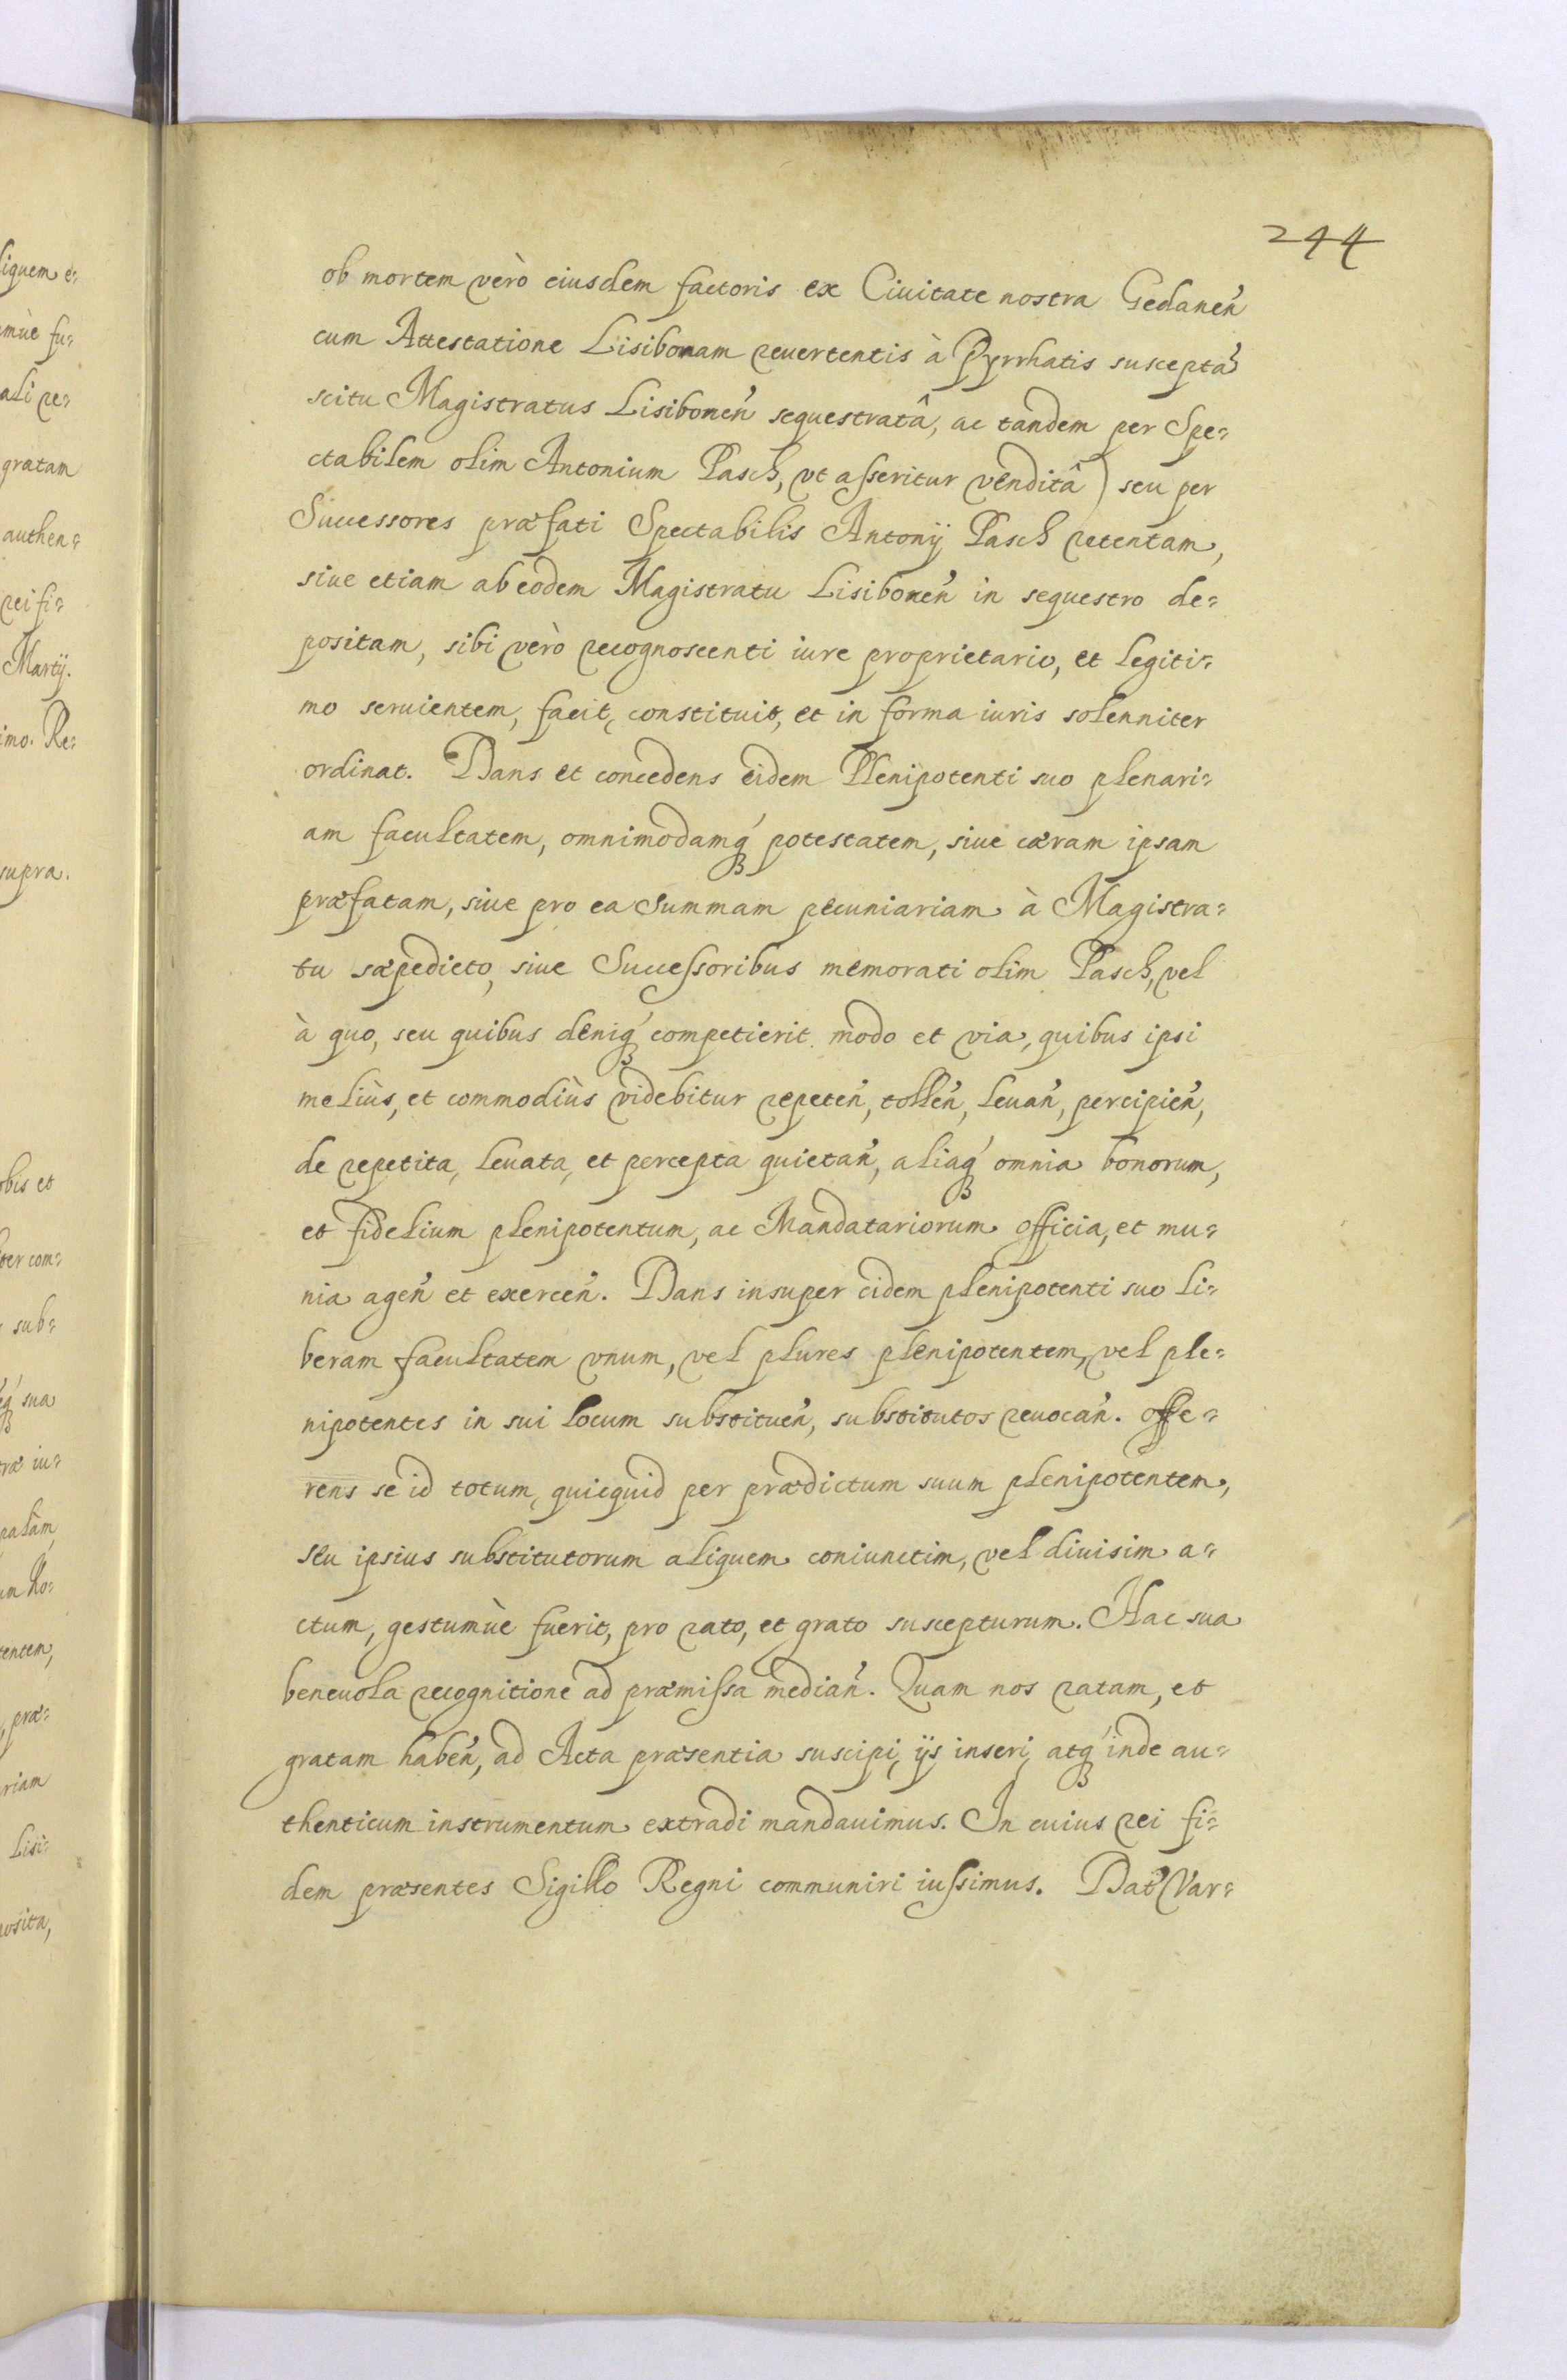 244
ob mortem verò eiusdem factoris ex Ciuitate nostra Gedaneñ
cum Attestatione Lisibonam reuertentis à Pyrrhatis susceptâ
scitu Magistratus Lisiboneñ sequestratâ, ac tandem per Spe⸗
ctabilem olim Antonium Pasch, vt aſseritur venditâ) seu per
Successores præfati Spectabilis Antonij Pasch retentam,
siue etiam ab eodem Magistratu Lisiboneñ in sequestro de⸗
positam, sibi verò recognoscenti iure proprietario, et legiti⸗
mo seruientem, facit, constituit, et in forma iuris solenniter
ordinat. Dans et concedens eidem Plenipotenti suo plenari⸗
am facultatem, omnimodamq́ꝫ potestatem, siue cæram ipsam
præfatam, siue pro ea summam pecuniariam à Magistra⸗
tu sæpedicto, siue Succeſsoribus memorati olim Pasch, vel
à quo, seu quibus deniq́ꝫ competierit modo et via, quibus ipsi
meliùs, et commodiùs videbitur repeteñ, tolleñ, leuañ, percipieñ,
de repetita, leuata, et percepta quietañ, aliaq́ꝫ omnia bonorum,
et fidelium plenipotentum, ac Mandatariorum officia, et mu⸗
nia ageñ et exerceñ. Dans insuper eidem plenipotenti suo li⸗
beram facultatem vnum, vel plures plenipotentem, vel ple⸗
nipotentes in sui locum substitueñ, substitutos reuocañ. offe⸗
rens se id totum, quicquid per prædictum suum plenipotentem,
seu ipsius substitutorum aliquem coniunctim, vel diuisim a⸗
ctum, gestumùe fuerit, pro rato, et grato suscepturum. Hac sua
beneuola recognitione ad præmiſsa mediañ. Quam nos ratam, et
gratam habeñ, ad Acta præsentia suscipi, ijs inseri, atq́ꝫ inde au⸗
thenticum instrumentum extradi mandauimus. In cuius rei fi⸗
dem præsentes Sigillo Regni communiri iuſsimus. Dat̃ Var⸗